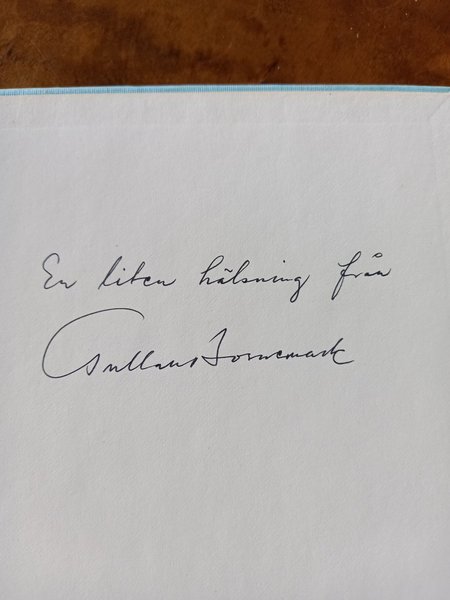 En liten hälsning från
Gullan Bornemark